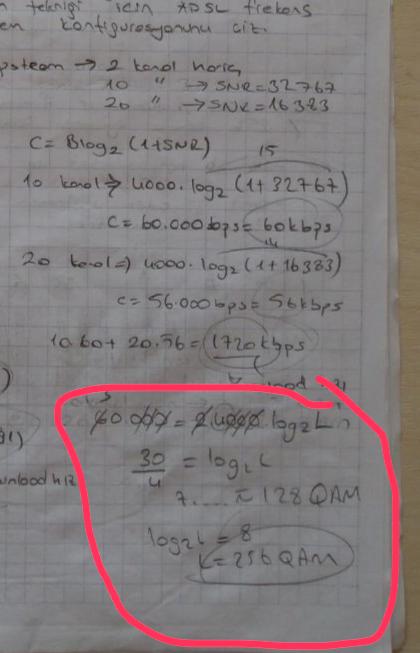 tekniği için ADSL frekans
konfigurasyonunu çiz.
upstream → 2 kanal hariç
10 " → SNR=32767
20 " → SNR=16383
C = Blog₂(1+SNR)
15
10 kanal ⇒ 4000.log₂(1+32767)
C = 60.000bps = 60kbps
14
20 kanal ⇒ 4000.log₂(1+16383)
C = 56.000bps = 56kbps
10.60 + 20.56 = 1720kbps
60.000 = 2.4000.log₂L
30/4 = log₂L
7..... ≈ 128 QAM
log₂L = 8
L = 256 QAM